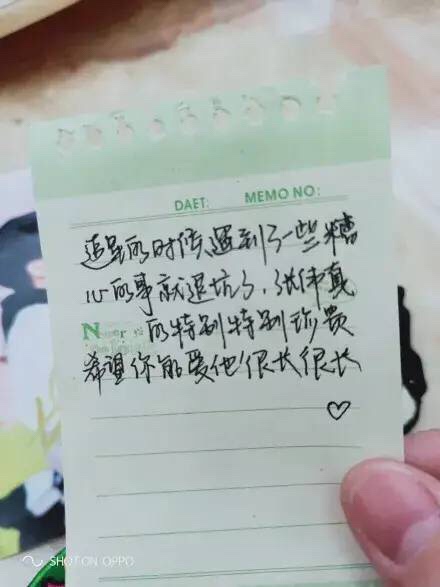 DAET: MEMO NO:
追星的时候遇到了一些糟
心的事就退坑了,张伟真
的特别特别珍贵
希望你能爱他很长很长
♡
SHOT ON OPPO